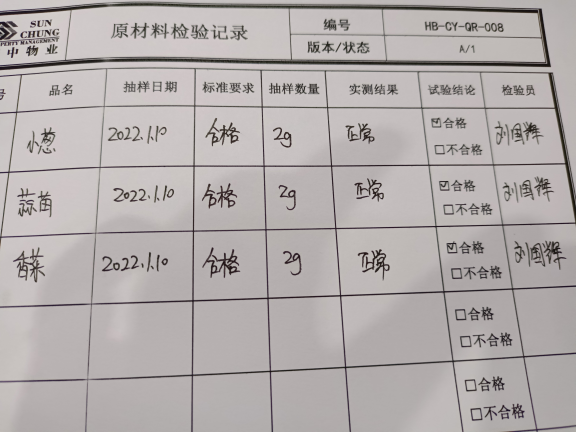 SUN
CHUNG
PROPERTY MANAGEMENT
中物业
原材料检验记录
编号
HB-CY-QR-008
版本/状态
A/1
号 品名 抽样日期 标准要求 抽样数量 实测结果 试验结论 检验员
小葱 2022.1.10 合格 2g 正常 ☑合格 刘国辉
□不合格
蒜苗 2022.1.10 合格 2g 正常 ☑合格 刘国辉
□不合格
香菜 2022.1.10 合格 2g 正常 ☑合格 刘国辉
□不合格
□合格
□不合格
□合格
□不合格